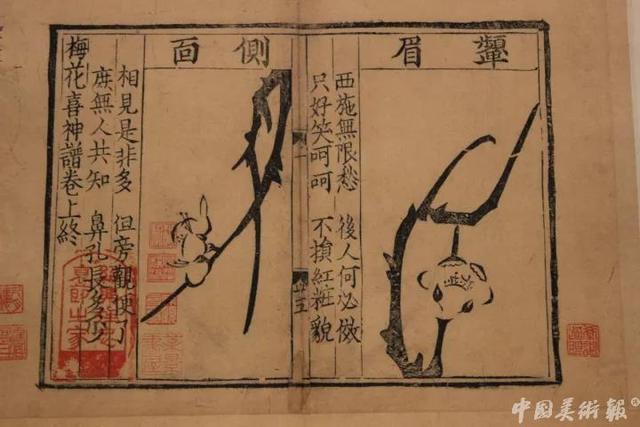 顰眉
西施無限愁 後人何必傚
只好笑呵呵 不損紅粧貌
側面
相見是非多 但旁觀便了
庶無人共知 鼻孔長多少
梅花喜神譜卷上終
中國美術報